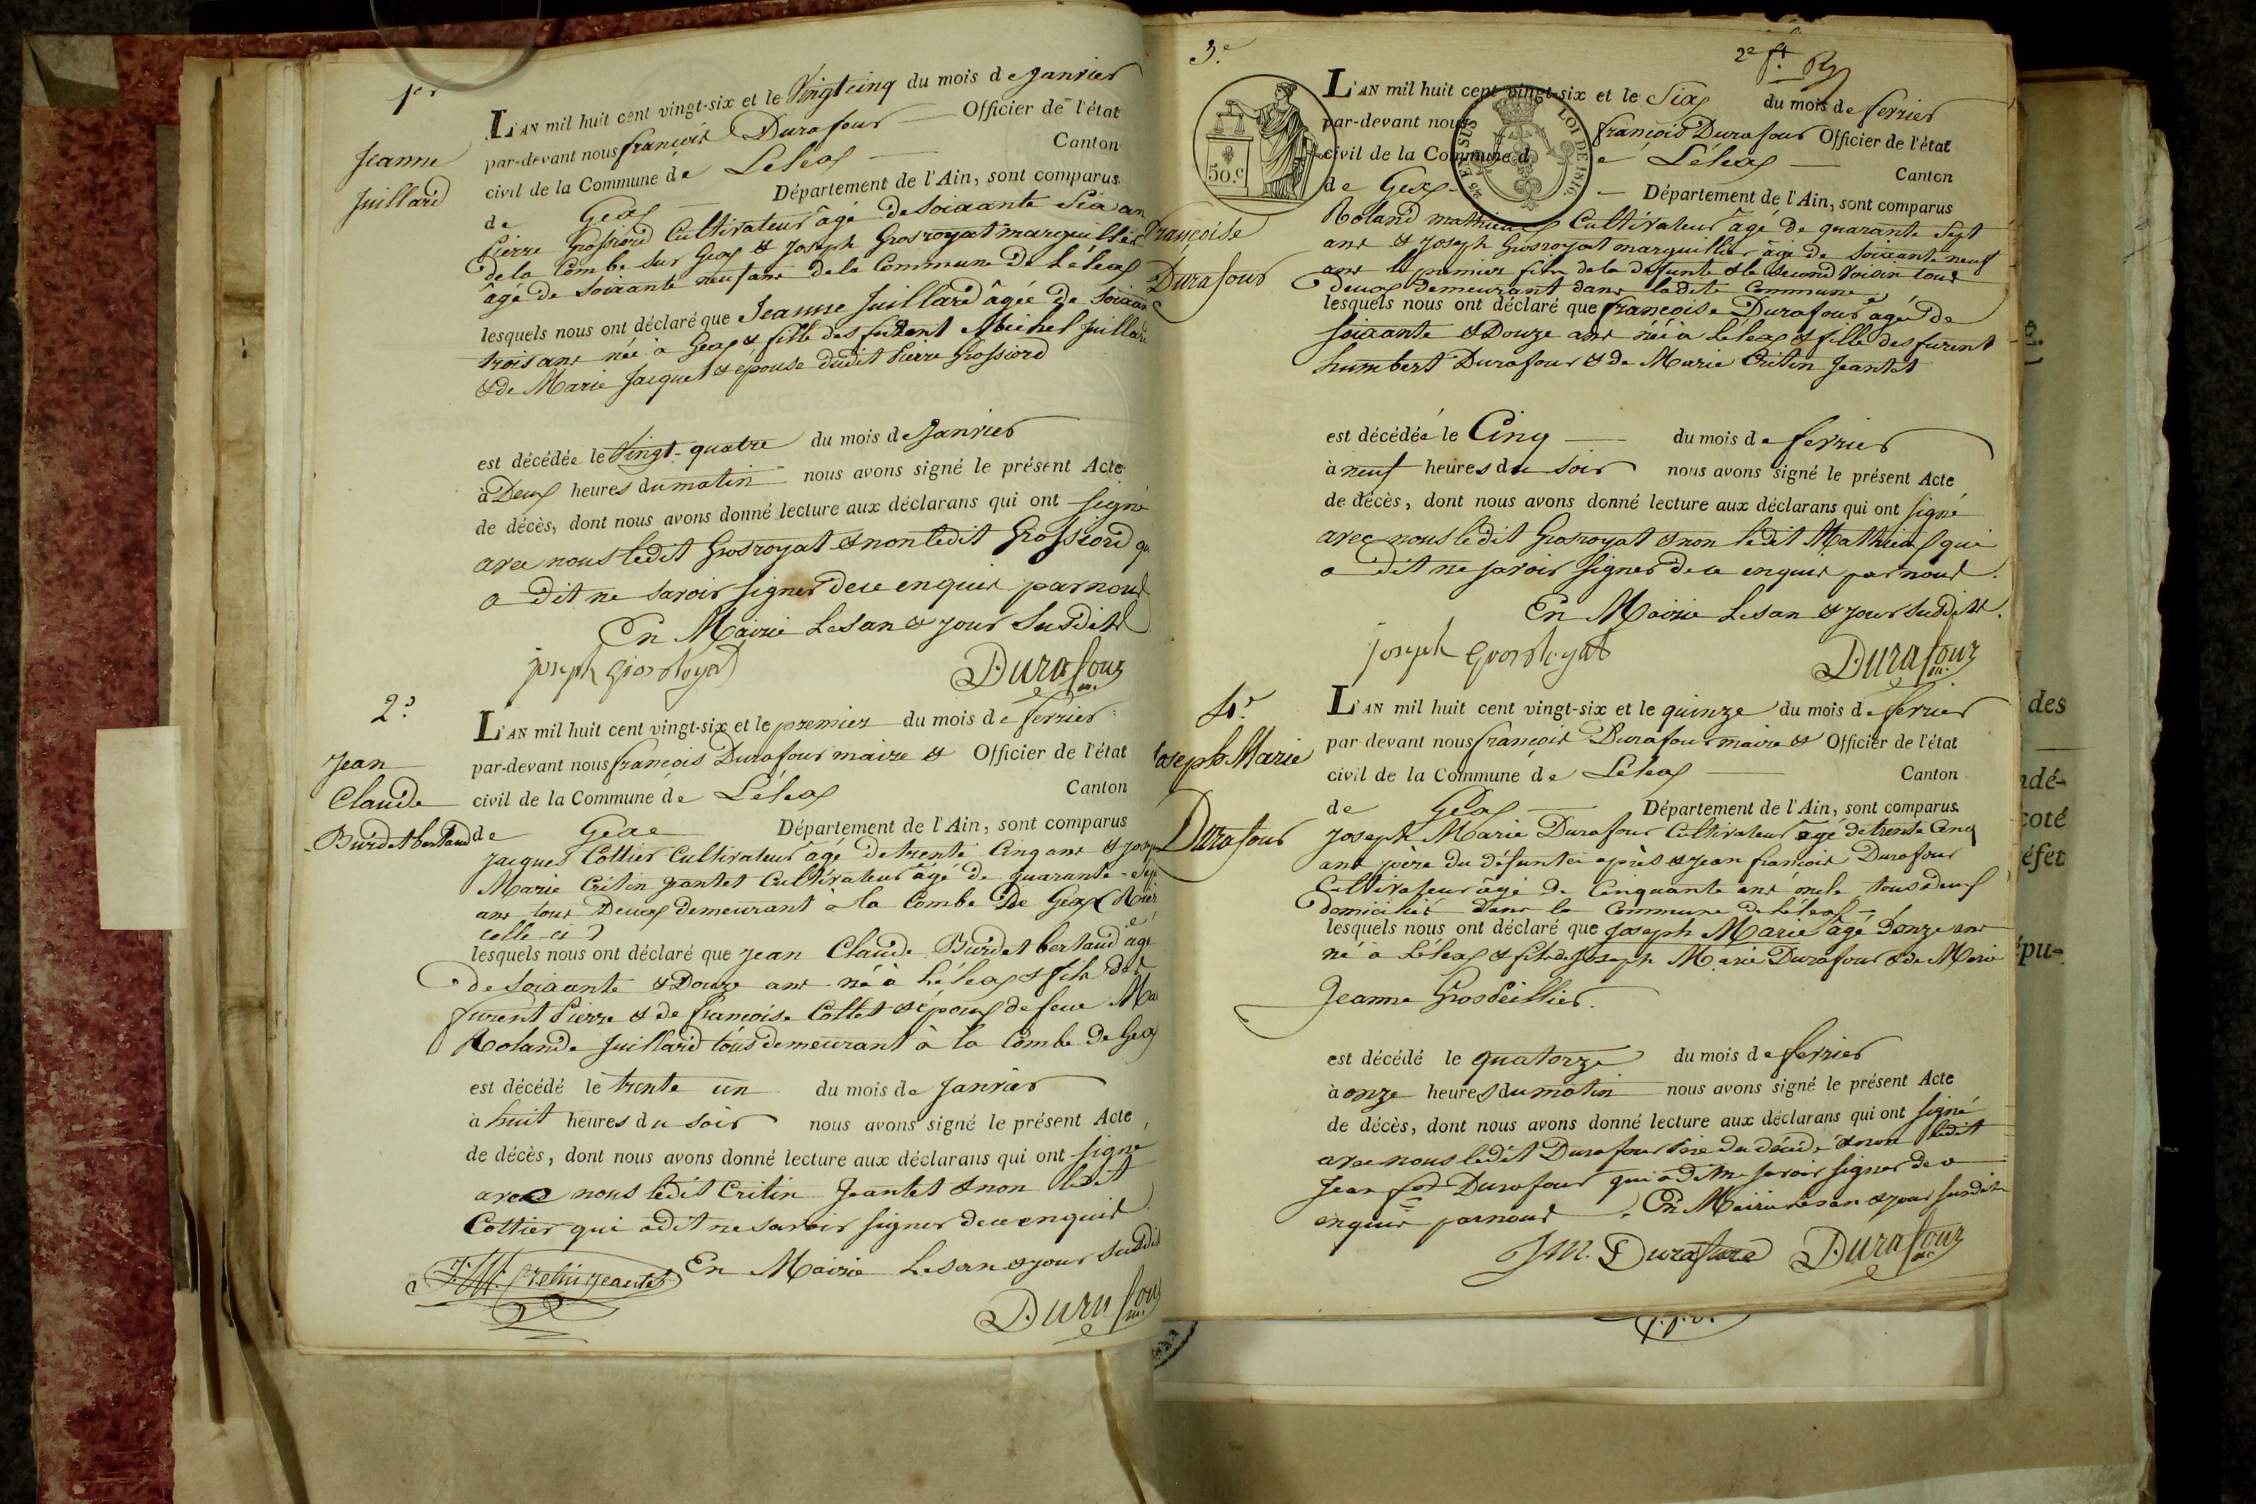 1er
Jeanne
Juillard
L'AN mil huit cent vingt-six et le Vingt cinq du mois de Janvier
par-devant nous françois Durafour Officier de l'état
civil de la Commune de Léleax Canton
de Gex Département de l'Ain, sont comparus
Pierre Grossiord Cultivateur âgé de soixante Six an
de la Combe sur Gex & Joseph Grosroyat marguillier
âgé de soixante neuf ans de la Commune de Léleax
lesquels nous ont déclaré que Jeanne Juillard âgée de soixante
trois ans née à Gex & fille des furent Michel Juillard
& de Marie Jacquet & épouse dudit Pierre Grossiord
est décédée le Vingt-quatre du mois de Janvier
à Deux heures du matin nous avons signé le présent Acte
de décès, dont nous avons donné lecture aux déclarans qui ont signé
avec nous ledit Grosroyat & non ledit Grossiord qu
a dit ne savoir signer de ce enquis par nous
En Mairie Les an & jour Susdits
joseph Grosroyat Durafour
2e
Jean
Claude
Burdet bertaud
L'AN mil huit cent vingt-six et le premier du mois de fevrier
par-devant nous françois Durafour maire & Officier de l'état
civil de la Commune de Léleax Canton
de Gex Département de l'Ain, sont comparus
Jacques Cottier Cultivateur âgé de trente Cinq ans & Joseph
Marie Critin Jeantet Cultivateur âgé de quarante-Sept
ans tous Deux demeurant à la Combe De Gex
celle-ci)
lesquels nous ont déclaré que Jean Claude Burdet bertaud âgé
de soixante & Douze ans né à Léleax & fils des
furent Pierre & de françoise Cottet & époux de feue
Rolande Juillard tous demeurant à la Combe de Gex
est décédé le trente un du mois de Janvier
à huit heures du soir nous avons signé le présent Acte
de décès, dont nous avons donné lecture aux déclarans qui ont signé
avec nous ledit Critin Jeantet & non ledit
Cottier qui a dit ne savoir signer de ce enquis
En Mairie Les an & jour susdits
J.M. Cretin jeantet Durafour
3e
2e ft
50.c
LOI DE 1816.
françoise
Durafour
L'AN mil huit cent vingt-six et le Six du mois de fevrier
par-devant nous françois Durafour Officier de l'état
civil de la Commune de Léleax Canton
de Gex Département de l'Ain, sont comparus
Roland mathieu Cultivateur âgé de quarante Sept
ans & Joseph Grosroyat marguillier âgé de soixante neuf
ans le premier fils de la défunte & le second Voisin tous
deux demeurant dans ladite Commune
lesquels nous ont déclaré que françoise Durafour âgée de
soixante & Douze ans née à Léleax & fille des furent
humbert Durafour & de Marie Critin Jeantet
est décédée le Cinq du mois de fevrier
à neuf heures du soir nous avons signé le présent Acte
de décès, dont nous avons donné lecture aux déclarans qui ont signé
avec nous ledit Grosroyat & non ledit Mathieu qui
a dit ne savoir signer de ce enquis par nous.
En Mairie Les an & jour susdits.
joseph Grosroyat Durafour
4e
Joseph Marie
Durafour
L'AN mil huit cent vingt-six et le quinze du mois de fevrier
par-devant nous françois Durafour maire & Officier de l'état
civil de la Commune de Léleax Canton
de Gex Département de l'Ain, sont comparus
Joseph Marie Durafour Cultivateur âgé de trente Cinq
ans père du défunt ci après & Jean françois Durafour
Cultivateur âgé de Cinquante ans oncle tous deux
domiciliés dans la Commune de Léleax
lesquels nous ont déclaré que Joseph Marie âgé d'onze ans
né à Léleax & fils de Joseph Marie Durafour & de Marie
Jeanne Grospeillier.
est décédé le quatorze du mois de fevrier
à onze heures du matin nous avons signé le présent Acte
de décès, dont nous avons donné lecture aux déclarans qui ont signé
avec nous ledit Durafour Père du décédé & non ledit
Jean fois Durafour qui a dit ne savoir signer de ce
enquis par nous. En Mairie les an & jour susdits
J.M. Durafour Durafour
des
ndé-
coté
éfet
épu-